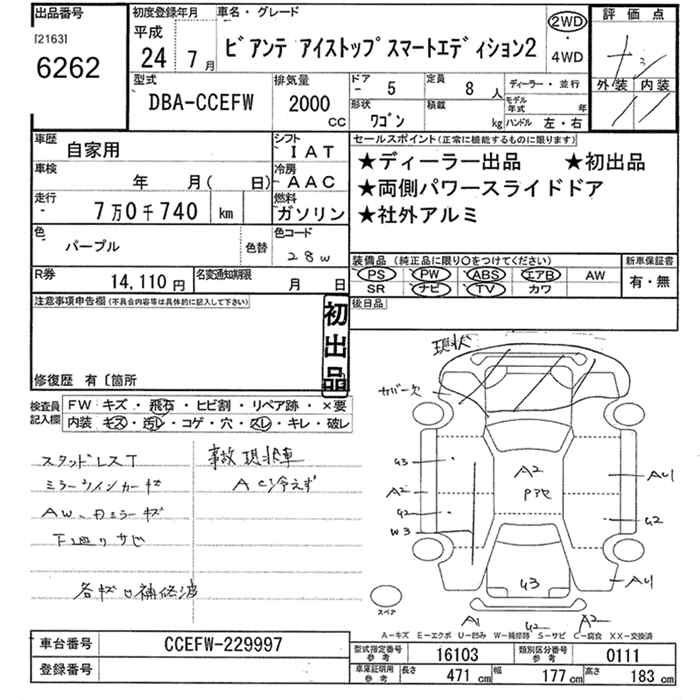 出品番号 初度登録年月 車名・グレード 評価点
[2163] 平成 2WD
6262 24年7月 ビアンテ アイストップスマートエディション2 ・4WD
型式 排気量 ドア 定員 ディーラー・並行 外装 内装
DBA-CCEFW 2000CC - 5 8人 モデル年式 年
形状 積載 ハンドル 左・右
ワゴン kg
車歴 自家用 シフト セールスポイント(正常に機能するものに限ります)
- IAT ★ディーラー出品 ★初出品
車検 年 月( 日) 冷房 ★両側パワースライドドア
- AAC ★社外アルミ
走行 燃料
- 7万0千740 km ガソリン
色 パープル 色替 色コード 装備品(純正品に限り○をつけてください) 新車保証書
28w PS PW ABS エアB AW 有・無
R券 14,110円 名変通知期限 月 日 SR ナビ TV カワ
注意事項申告欄(不具合内容等は具体的に記入して下さい) 初出品 後日品
現状
修復歴 有〔箇所
検査員記入欄 FW キズ・飛石・ヒビ割・リペア跡・×要
内装 キズ・汚レ・コゲ・穴・スレ・キレ・破レ
スタッドレスT 事故現状車
ミラーウインカーキズ AC冷えず
AW、ミラーキズ
下廻りサビ
各キズ補修波
カバー欠
G3
A2
G2
W3
A2
G3
A1
G2
A2
スペア
A-キズ E-エクボ U-凹み W-補修跡 S-サビ C-腐食 XX-交換済
車台番号 CCEFW-229997 型式指定番号参考 16103 類別区分番号参考 0111
登録番号 車庫証明用参考 長さ 471cm 幅 177cm 高さ 183cm